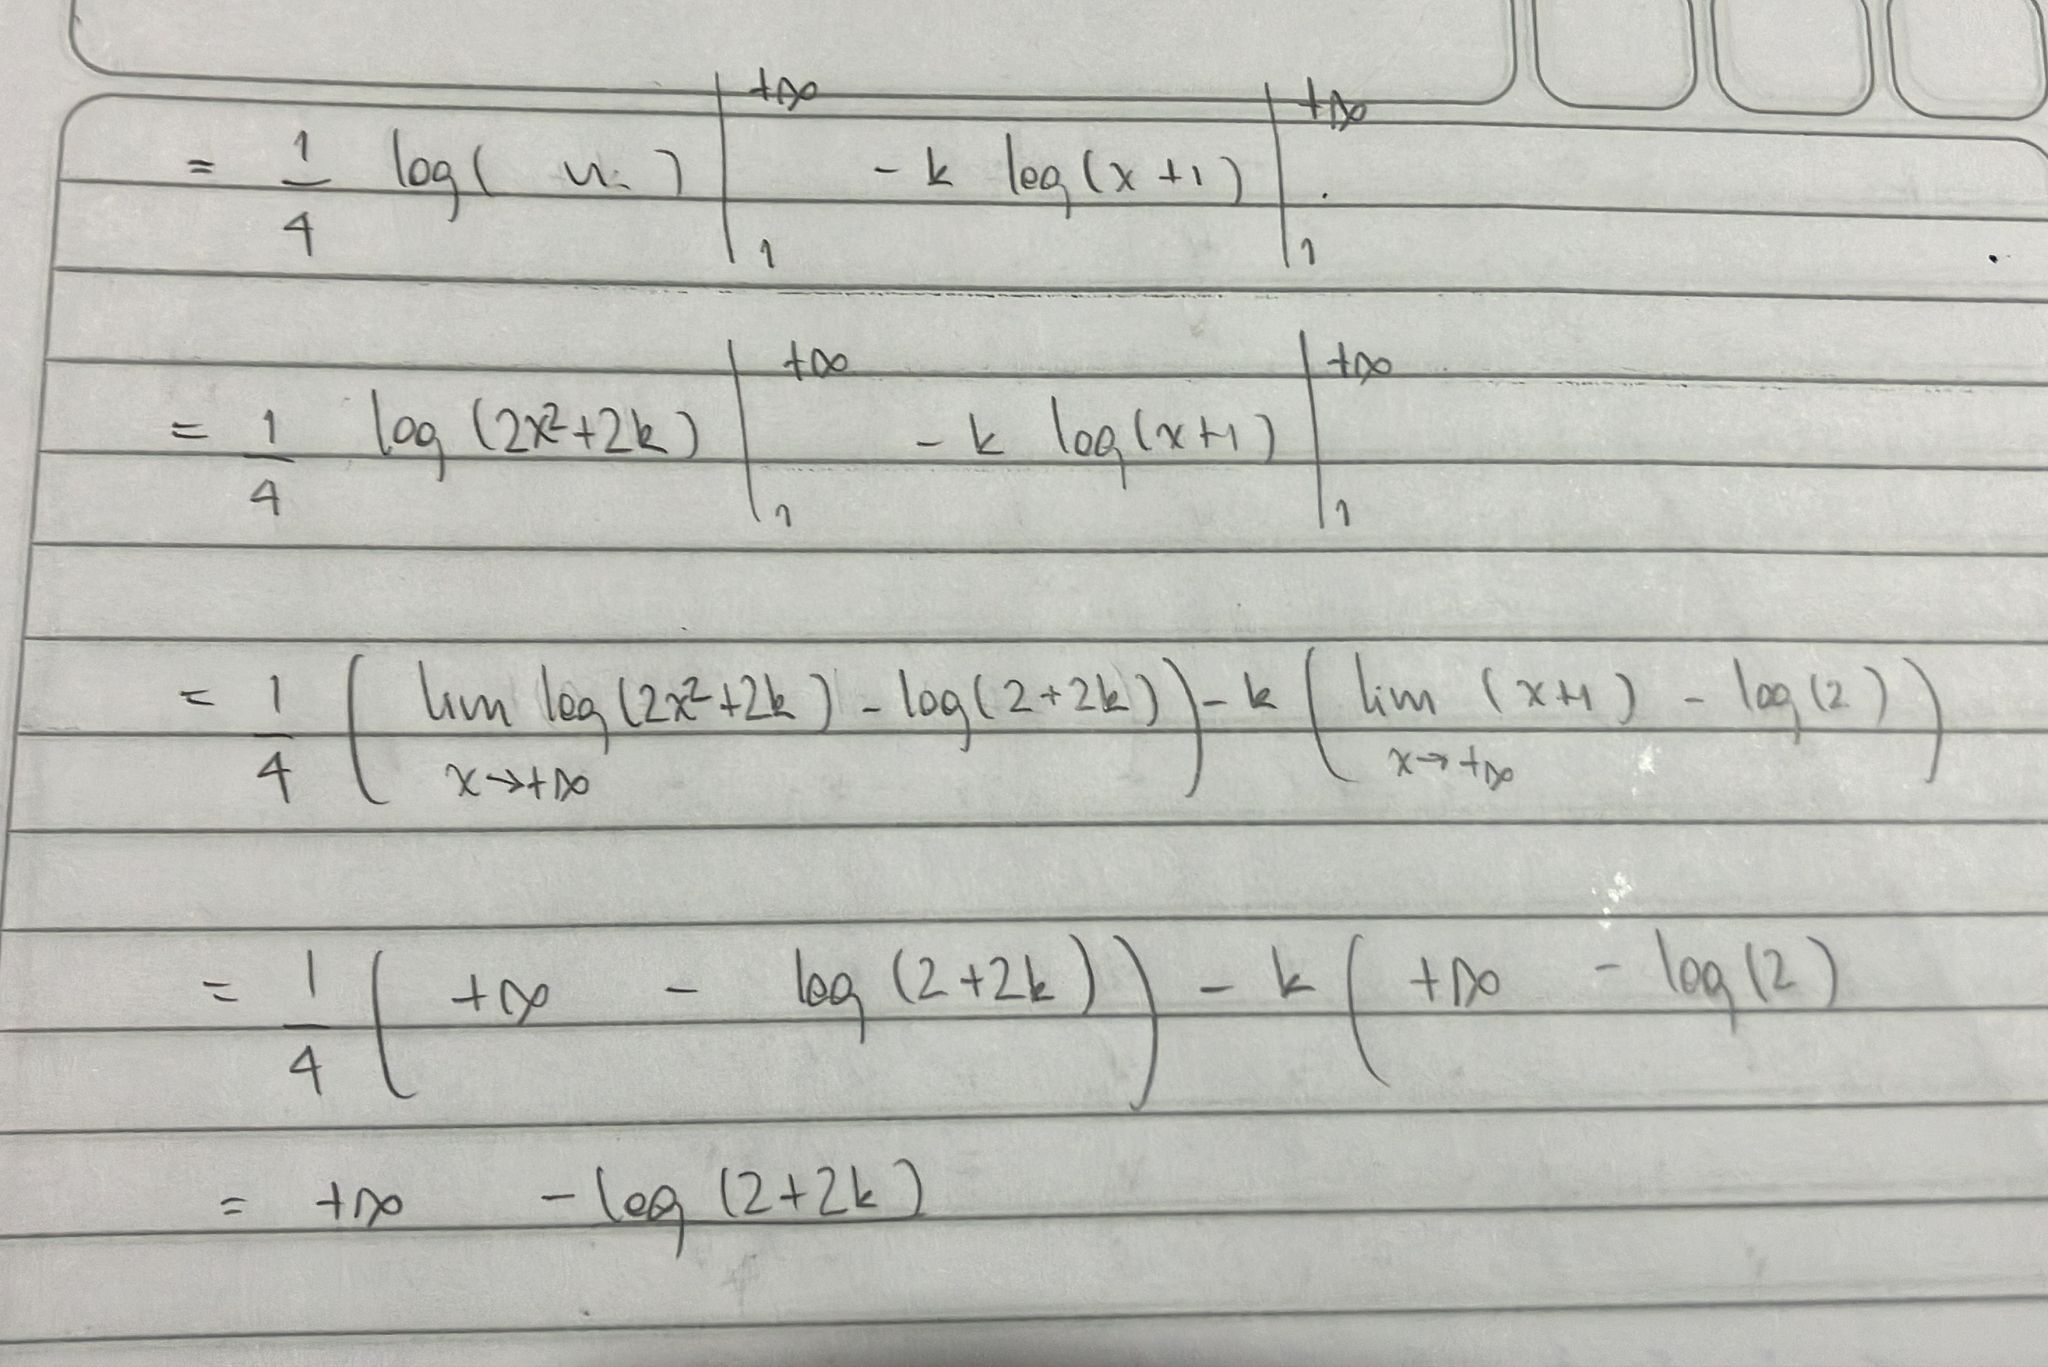 = 1/4 log( u ) |₁^{+∞} - k log(x+1) |₁^{+∞}
= 1/4 log(2x²+2k) |₁^{+∞} - k log(x+1) |₁^{+∞}
= 1/4 ( lim_{x→+∞} log(2x²+2k) - log(2+2k) ) - k ( lim_{x→+∞} (x+1) - log(2) )
= 1/4 ( +∞ - log(2+2k) ) - k ( +∞ - log(2)
= +∞ - log(2+2k)